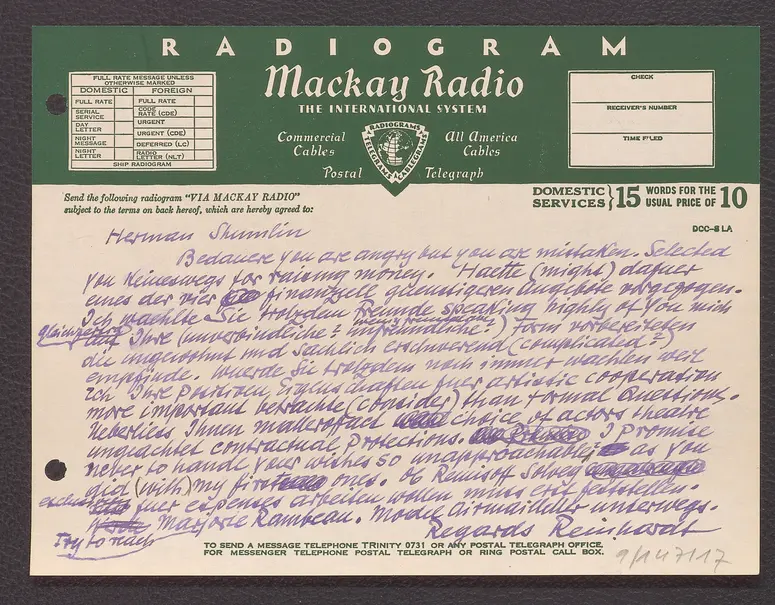 RADIOGRAM
FULL RATE MESSAGE UNLESS
OTHERWISE MARKED
DOMESTIC FOREIGN
FULL RATE FULL RATE
SERIAL SERVICE CODE RATE (CDE)
DAY LETTER URGENT
NIGHT MESSAGE URGENT (CDE)
DEFERRED (LC)
NIGHT LETTER RADIO LETTER (NLT)
SHIP RADIOGRAM
Mackay Radio
THE INTERNATIONAL SYSTEM
Commercial Cables
All America Cables
RADIOGRAMS
Postal Telegraph
CHECK
RECEIVER'S NUMBER
TIME FILED
Send the following radiogram "VIA MACKAY RADIO"
subject to the terms on back hereof, which are hereby agreed to:
DOMESTIC SERVICES } 15 WORDS FOR THE USUAL PRICE OF 10
DCC-8 LA
Herman Shumlin
Bedauere you are angry but you are mistaken. Selected
you Keineswegs for raising money. Haette (might) dafuer
eines der vier finanziell guenstigeren Angebote vorgezogen.
Ich waehlte Sie trotzdem Freunde speaking highly of you mich
auf Ihre (unverbindliche? unfreundliche?) form vorbereiteten
die ungewohnt und sachlich erschwerend (complicated?)
empfinde. Wuerde Sie trotzdem noch immer waehlen weil
Ich Ihre positiven Eigenschaften fuer artistic cooperation
more important betrachte (consider) than formal Questions.
Ueberliess Ihnen matterofact choice of actors theatre
ungeachtet contractual protections. I promise
never to handle your wishes so unapproachable as you
did (with) my first ones. Ob Remisoff Solvey
fuer expenses arbeiten wollen muss erst feststellen.
Try to reach Marjorie Rambeau. Model Airmailletter unterwegs.
Regards Reinhardt
TO SEND A MESSAGE TELEPHONE TRINITY 0731 OR ANY POSTAL TELEGRAPH OFFICE.
FOR MESSENGER TELEPHONE POSTAL TELEGRAPH OR RING POSTAL CALL BOX.